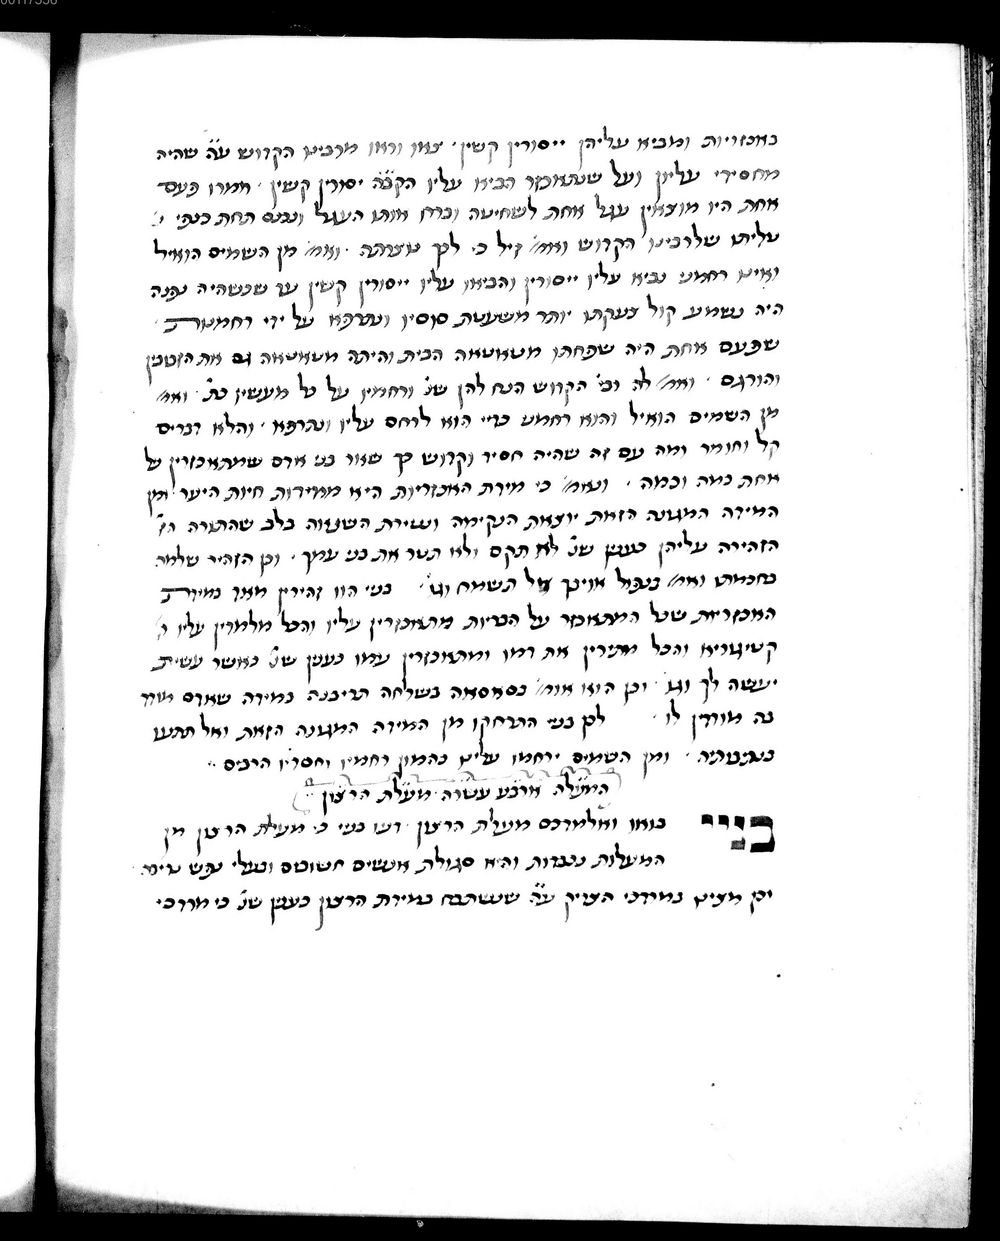 באכזריות ומביא עליהן ייסורין קשין · בואו וראו מרבינו הקדוש ע״ה שהיה
מחסידי עליון ועל שנתאכזר הביא עליו הקב״ה יסורין קשין · אמרו פעם
אחת היו מוציאין עגל אחת לשחיטה וברח אותו העגל ונכנס תחת כנפי
טליתו שלרבינו הקדוש ואמ׳ זיל כי לכך נוצרתה · ואמ׳ מן השמים הואיל
ואינו רחמני נביא עליו ייסורין והביאו עליו ייסורין קשין עד שכשהיה נפנה
היה נשמע קול צעקתו יותר משעטת סוסיו ונתרפא על ידי רחמנות
שפעם אחת היה שפחתו מטאטאה הבית והיתה מטאטאה גם את
והורגם · ואמ׳ לה רבי׳ הקדוש הנח להן שנ׳ ורחמיו על כל מעשיו כת׳ · ואמ׳
מן השמים הואיל והוא רחמני כדיי הוא לרחם עליו ונתרפא · והלא דברים
קל וחומר ומה עם זה שהיה חסיד וקדוש כך שאר בני אדם שמתאכזרין על
אחת כמה וכמה · ונאמ׳ כי מידת האכזריות היא ממידות חיות היער ומן
המידה המגונה הזאת יוצאת הנקימה ונטירת השנאה בלב שהתורה
הזהירה עליהן כענין שנ׳ לא תקם ולא תטר את בני עמך · וכן הזהיר שלמה
בחכמתו ואמ׳ בנפול אויבך אל תשמח וגו׳ בני הוו זהירין מאד במידת
האכזריות שכל המתאכזר על הבריות מתאכזרין עליו והכל מלמדין עליו
קטיגוריא והכל מתירין את דמו ומתאכזרין עמו כענין שנ׳ כאשר עשית
יעשה לך וגו׳ וכן הוא אומ׳ בסאסאה בשלחה תריבנה במידה שאדם מודד
בה מודדין לו · לכן בני התרחקו מן המידה המגונה הזאת ואל תתעו
בנתיבותיה · ומן השמים ירחמו עלינו בהמון רחמיו וחסדיו הרבים
המעלה ארבע עשרה מעלת הרצון
בניי בואו ואלמדכם מעלת הרצון · דעו בניי כי מעלת הרצון מן
המעלות נכבדות והיא סגולת אנשים חשובים ובעלי נפש
וכן מצינו במרדכי הצדיק ע״ה שנשתבח במידת הרצון כענין שנ׳ כי מרדכי